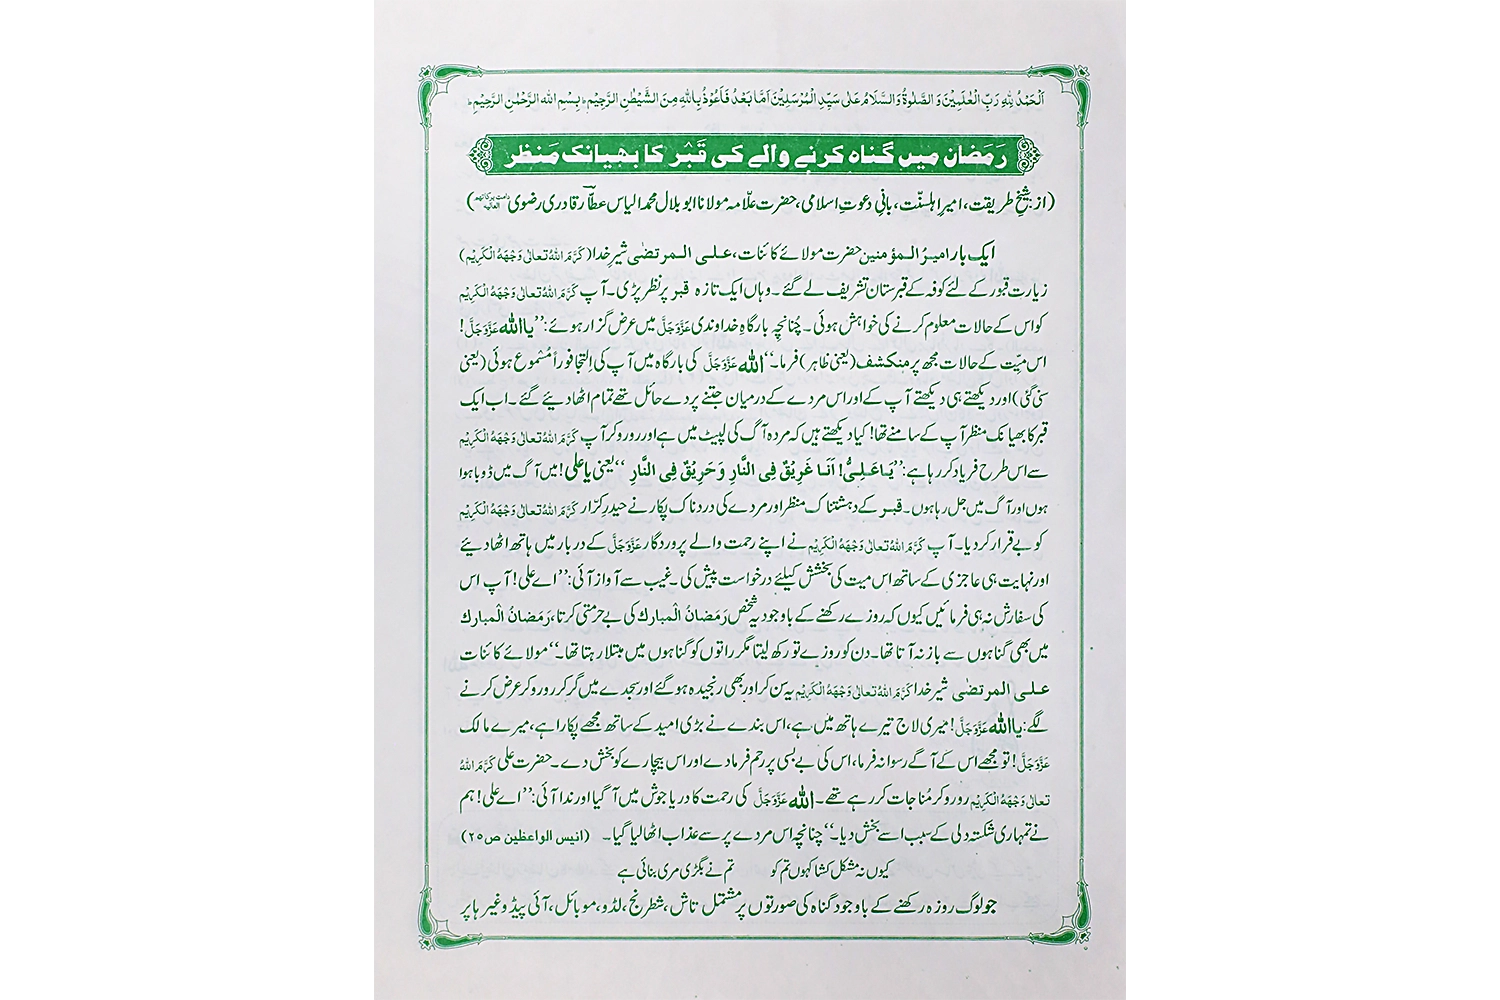 اَلْحَمْدُ لِلّٰہِ رَبِّ الْعٰلَمِیْنَ وَ الصَّلٰوۃُ وَالسَّلَامُ عَلٰی سَیِّدِ الْمُرْسَلِیْنَ اَمَّا بَعْدُ فَاَعُوْذُ بِاللّٰہِ مِنَ الشَّیْطٰنِ الرَّجِیْمِ ؕ بِسْمِ اللہِ الرَّحْمٰنِ الرَّحِیْمِ ؕ
رَمَضان میں گناہ کرنے والے کی قَبْر کا بھیانک مَنظر
(از: شیخِ طریقت، امیرِ اہلسنّت، بانیِ دعوتِ اسلامی، حضرت علّامہ مولانا ابو بلال محمد الیاس عطّار قادری رضوی دامت برکاتہم العالیہ)
ایک بار امیرُ المؤمنین حضرت مولائے کائنات، علی المرتضٰی شیرِ خدا (کَرَّمَ اللہُ تعالٰی وَجْہَہُ الْکَرِیْم)
زیارت قبور کے لئے کوفہ کے قبرستان تشریف لے گئے۔ وہاں ایک تازہ قبر پر نظر پڑی۔ آپ کَرَّمَ اللہُ تعالٰی وَجْہَہُ الْکَرِیْم
کو اس کے حالات معلوم کرنے کی خواہش ہوئی۔ چُنانچِہ بارگاہِ خداوندی عَزَّوَجَلَّ میں عرض گزار ہوئے: ’’یااللہ عَزَّوَجَلَّ!
اس میّت کے حالات مجھ پر منکشف (یعنی ظاہر) فرما۔‘‘ اللہ عَزَّوَجَلَّ کی بارگاہ میں آپ کی اِلتجا فوراً مَسْموع ہوئی (یعنی
سنی گئی) اور دیکھتے ہی دیکھتے آپ کے اور اس مردے کے درمیان جتنے پردے حائل تھے تمام اٹھا دیئے گئے۔ اب ایک
قبر کا بھیانک منظر آپ کے سامنے تھا! کیا دیکھتے ہیں کہ مردہ آگ کی لپیٹ میں ہے اور رو رو کر آپ کَرَّمَ اللہُ تعالٰی وَجْہَہُ الْکَرِیْم
سے اس طرح فریاد کر رہا ہے: ’’یَاعَلِیُّ! اَنَا غَرِیْقٌ فِی النَّارِ وَحَرِیْقٌ فِی النَّارِ‘‘ یعنی یاعلی! میں آگ میں ڈوبا ہوا
ہوں اور آگ میں جل رہا ہوں۔ قبر کے دہشتناک منظر اور مردے کی دردناک پکار نے حیدرِ کرّار کَرَّمَ اللہُ تعالٰی وَجْہَہُ الْکَرِیْم
کو بے قرار کر دیا۔ آپ کَرَّمَ اللہُ تعالٰی وَجْہَہُ الْکَرِیْم نے اپنے رحمت والے پروردگار عَزَّوَجَلَّ کے دربار میں ہاتھ اٹھا دیئے
اور نہایت ہی عاجزی کے ساتھ اس میت کی بخشش کیلئے درخواست پیش کی۔ غیب سے آواز آئی: ’’اے علی! آپ اس
کی سفارش نہ ہی فرمائیں کیوں کہ روزے رکھنے کے باوجود یہ شخص رَمَضانُ الْمبارك کی بے حرمتی کرتا، رَمَضانُ الْمبارك
میں بھی گناہوں سے باز نہ آتا تھا۔ دن کو روزے تو رکھ لیتا مگر راتوں کو گناہوں میں مبتلا رہتا تھا۔‘‘ مولائے کائنات
علی المرتضٰی شیرِ خدا کَرَّمَ اللہُ تعالٰی وَجْہَہُ الْکَرِیْم یہ سن کر اور بھی رنجیدہ ہو گئے اور سجدے میں گر کر رو رو کر عرض کرنے
لگے: یااللہ عَزَّوَجَلَّ! میری لاج تیرے ہاتھ میں ہے، اس بندے نے بڑی امید کے ساتھ مجھے پکارا ہے، میرے مالک
عَزَّوَجَلَّ! تو مجھے اس کے آگے رسوا نہ فرما، اس کی بے بسی پر رحم فرما دے اور اس بیچارے کو بخش دے۔ حضرت علی کَرَّمَ اللہُ
تعالٰی وَجْہَہُ الْکَرِیْم رو رو کر مُناجات کر رہے تھے۔ اللہ عَزَّوَجَلَّ کی رحمت کا دریا جوش میں آ گیا اور ندا آئی: ’’اے علی! ہم
نے تمہاری شکستہ دلی کے سبب اسے بخش دیا۔‘‘ چنانچہ اس مردے پر سے عذاب اٹھا لیا گیا۔ (انیس الواعظین ص۲۵)
کیوں نہ مشکل کشا کہوں تم کو تم نے بگڑی مری بنائی ہے
جو لوگ روزہ رکھنے کے باوجود گناہ کی صورتوں پر مشتمل تاش، شطرنج، لڈو، موبائل، آئی پیڈ وغیرہا پر